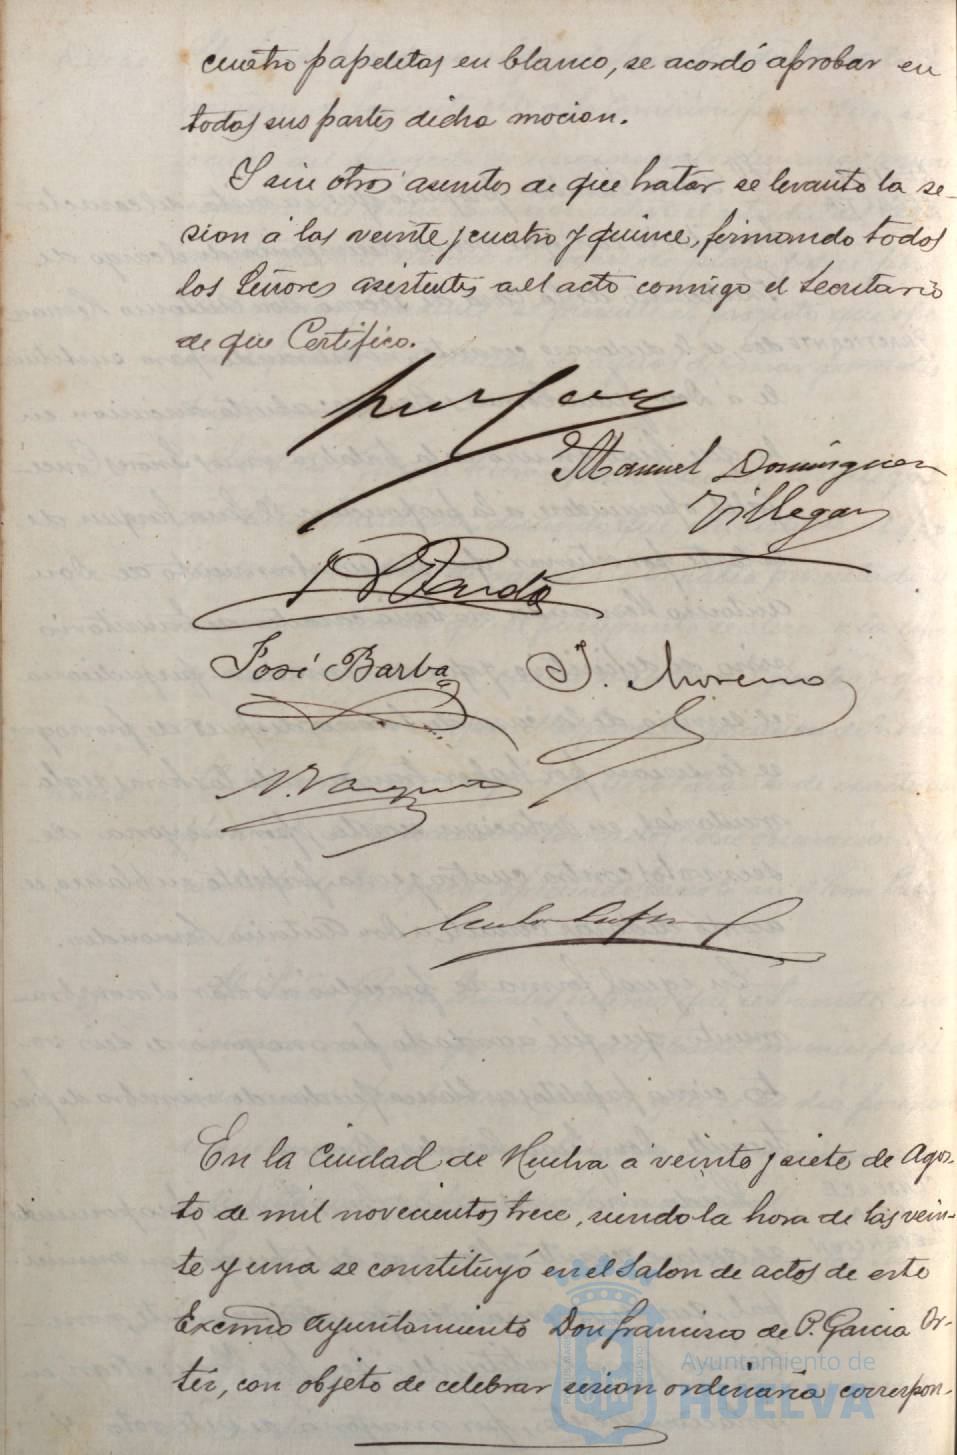 cuatro papeletas en blanco, se acordó aprobar en
todas sus partes dicha mocion.
Y sin otros asuntos de que tratar se levantó la se-
sion á las veinte y cuatro y quince, firmando todos
los Señores asistentes al acto conmigo el Secretario
de que Certifico.
Manuel Domínguez
Villegas
Pardo
José Barba
J. Moreno
En la Ciudad de Huelva á veinte y siete de Agos-
to de mil novecientos trece, siendo la hora de las vein-
te y una se constituyó en el Salon de actos de este
Excmo Ayuntamiento Don Francisco de P. Garcia Or-
tiz, con objeto de celebrar sesion ordinaria correspon-
Ayuntamiento de
HUELVA